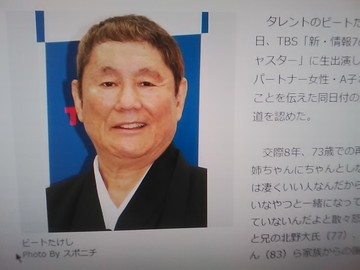 タレントのビートた
日、TBS「新・情報7
ャスター」に生出演し
パートナー女性・A子
ことを伝えた同日付の
道を認めた。
交際8年、73歳での再
姉ちゃんにちゃんとしな
は凄くいい人なんだから
いなやつと一緒になって
ていないんだよと散々怒
と兄の北野大氏(77)、
ん(83)ら家族からの
ビートたけし
Photo By スポニチ